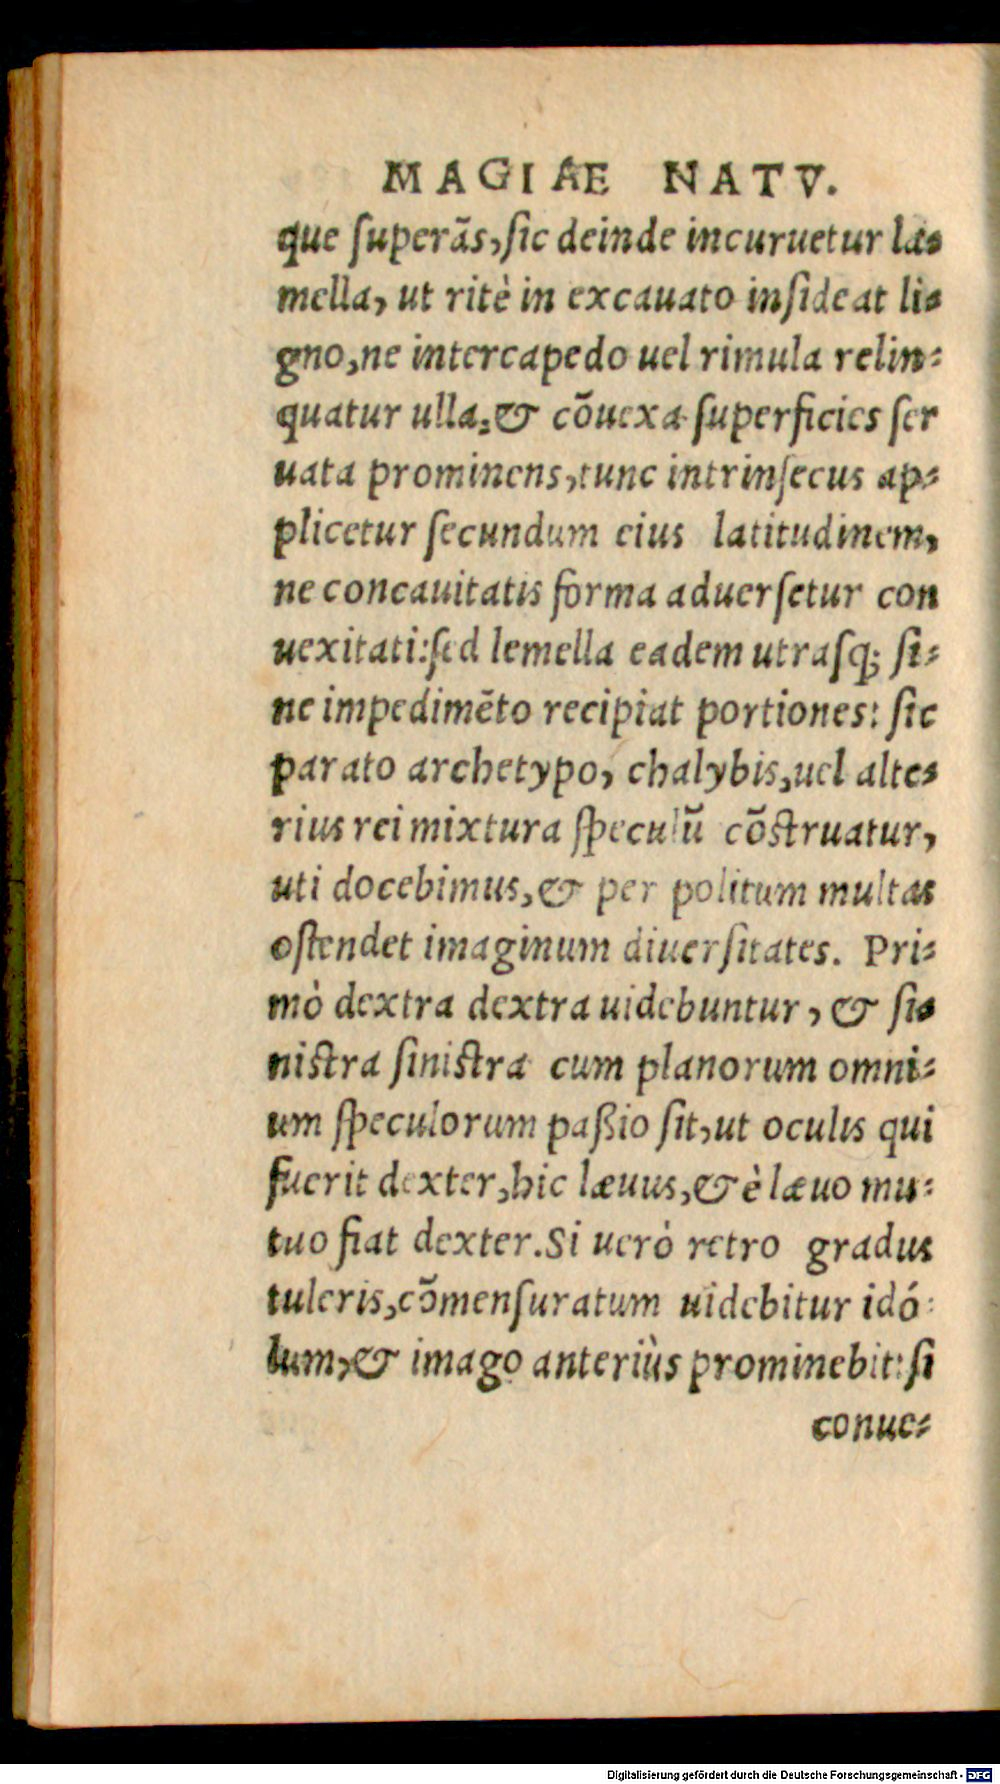 MAGIAE NATV.
que superãs, sic deinde incuruetur la-
mella, ut ritè in excauato insideat li-
gno, ne intercapedo uel rimula relin-
quatur ulla: & cõuexa superficies ser
uata prominens, tunc intrinsecus ap-
plicetur secundum eius latitudinem,
ne concauitatis forma aduersetur con
uexitati: sed lemella eadem utrasq; si-
ne impedimẽto recipiat portiones: sic
parato archetypo, chalybis, uel alte-
rius rei mixtura speculũ cõstruatur,
uti docebimus, & per politum multas
ostendet imaginum diuersitates. Pri-
mò dextra dextra uidebuntur, & si-
nistra sinistra cum planorum omni-
um speculorum paßio sit, ut oculis qui
fuerit dexter, hic læuus, & è læuo mu-
tuo fiat dexter. Si uerò retro gradus
tuleris, cõmensuratum uidebitur idó-
lum, & imago anteriùs prominebit: si
conue-
Digitalisierung gefördert durch die Deutsche Forschungsgemeinschaft - DFG